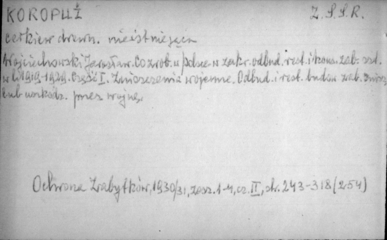 KOROPUŻ Z.S.S.R.
cerkiew drewn. nieistniejąca
Wojciechowski Jarosław. Co zrob. w Polsce w zakr. odbud. rest. i konserw. zab. szt.
w l. 1919-1929. Część I. Zniszczenia wojenne. Odbud. i rest. budow. zab. zniszcz.
lub uszkodz. przez wojnę.
Ochrona Zabytków, 1930/31, zesz. 1-4, cz. II, str. 243-318 (254)